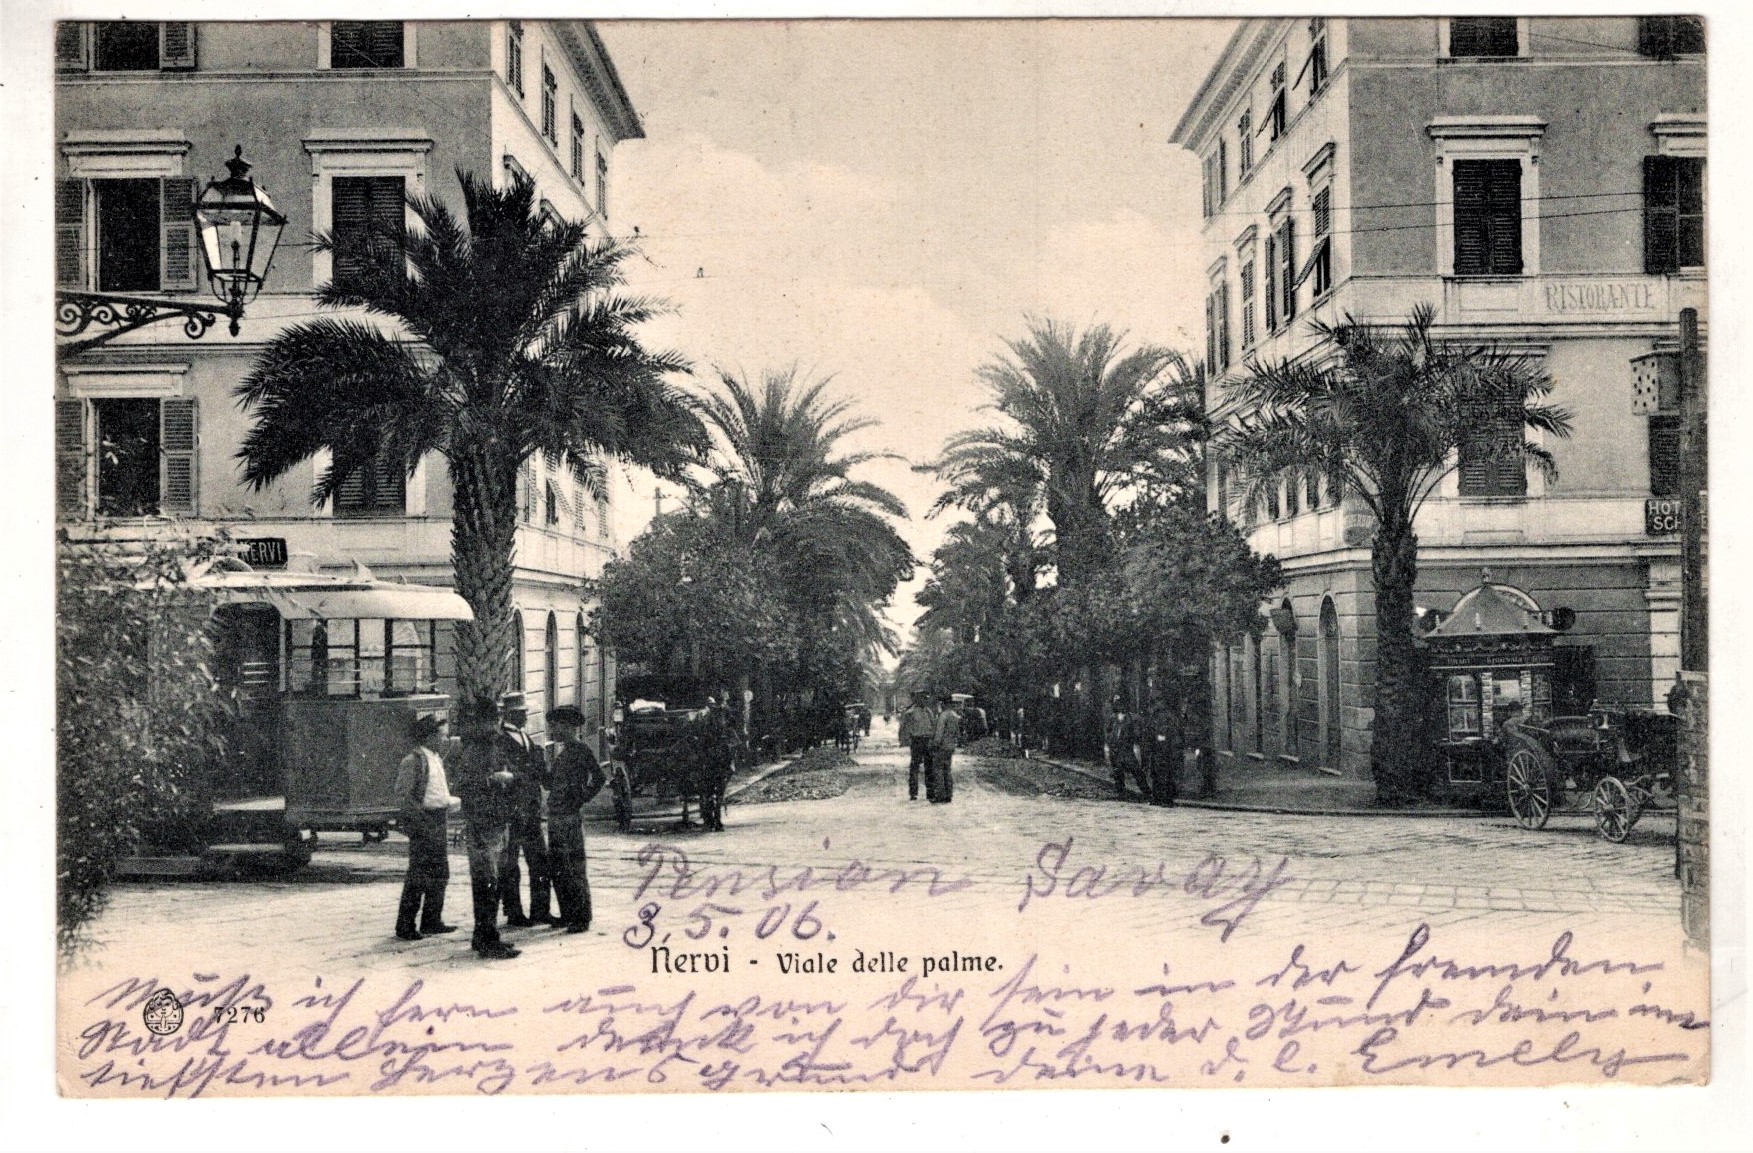 RISTORANTE
HOT
SCH
NERVI
Pension Savoy
3.5.06.
Nervi - Viale delle palme.
7276
Muß ich fern auch von dir sein in der fremden
Stadt allein denk ich doch zu jeder Stund dein im
tiefsten Herzensgrund deine d. l. Emelly